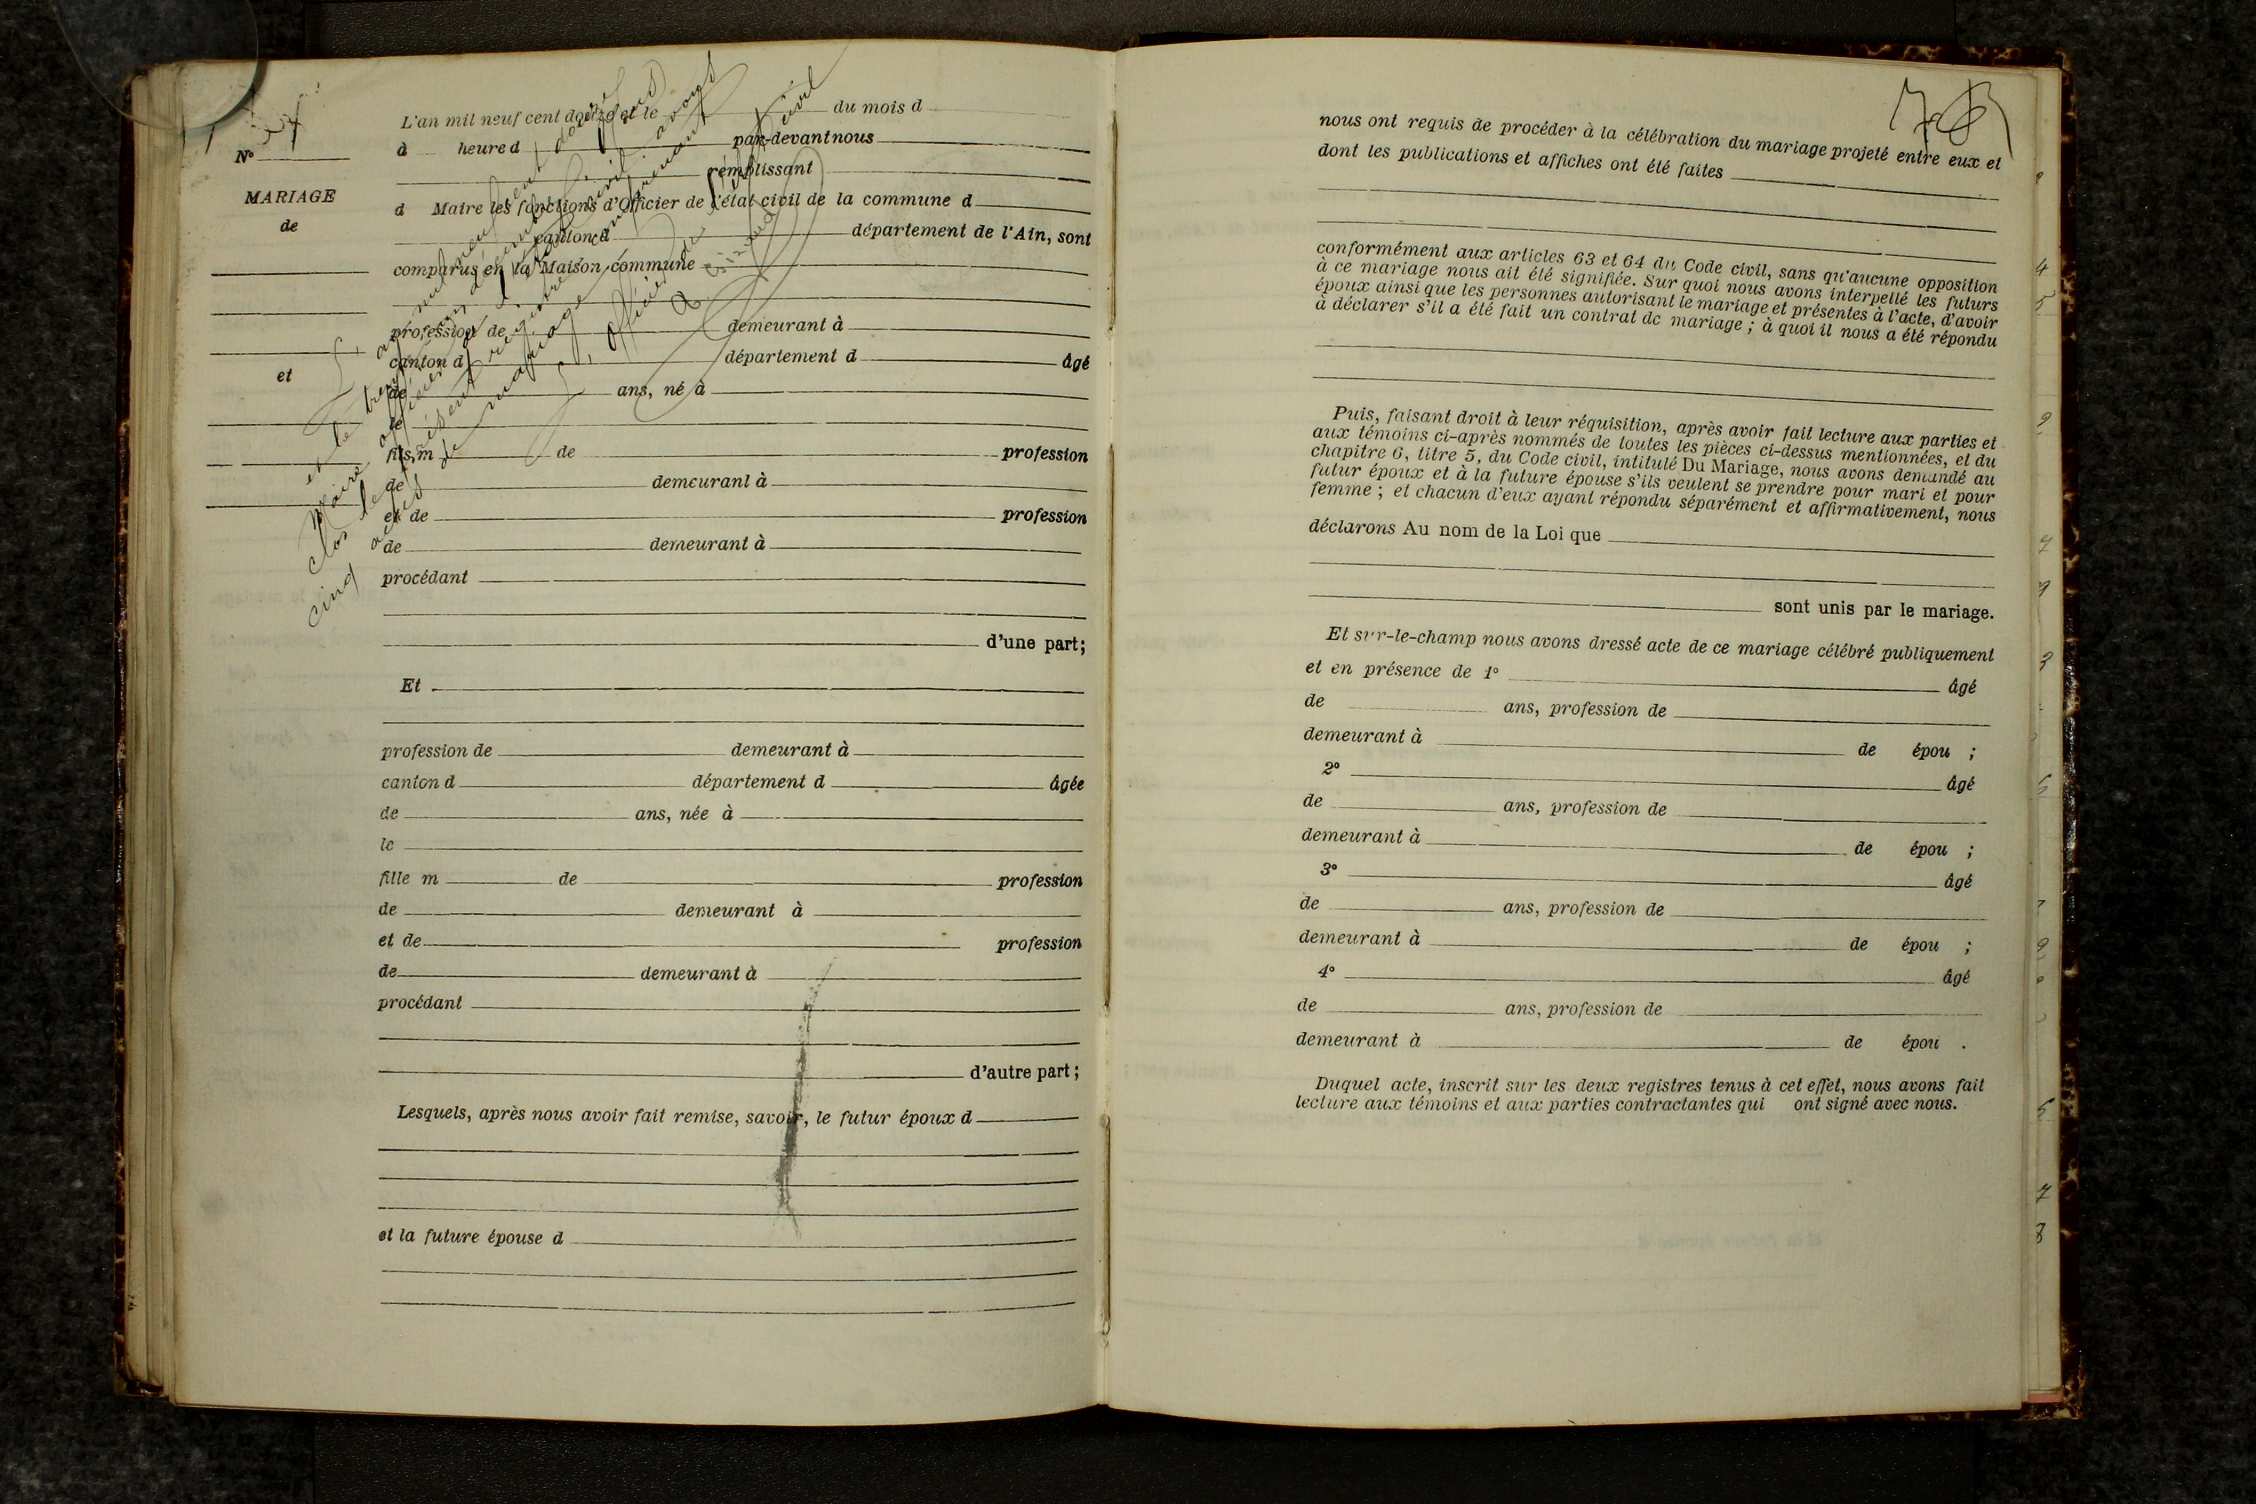 N°
MARIAGE
de
et
L'an mil neuf cent douze et le du mois d
à heure d par-devant nous
remplissant
d Maire les fonctions d'Officier de l'état civil de la commune d
canton d département de l'Ain, sont
comparus en la Maison commune
profession de demeurant à
canton d département d âgé
de ans, né à
le
fils m de profession
de demeurant à
et de profession
de demeurant à
procédant
d'une part;
Et
profession de demeurant à
canton d département d âgée
de ans, née à
le
fille m de profession
de demeurant à
et de profession
de demeurant à
procédant
d'autre part;
Lesquels, après nous avoir fait remise, savoir, le futur époux d
et la future épouse d
L'an mil neuf cent douze
et le trente un décembre nous
Maire officier de l'état civil avons
clos le présent registre comprenant
cinq actes de mariage
L'officier de l'état civil
nous ont requis de procéder à la célébration du mariage projeté entre eux et
dont les publications et affiches ont été faites
conformément aux articles 63 et 64 du Code civil, sans qu'aucune opposition
à ce mariage nous ait été signifiée. Sur quoi nous avons interpellé les futurs
époux ainsi que les personnes autorisant le mariage et présentes à l'acte, d'avoir
à déclarer s'il a été fait un contrat de mariage; à quoi il nous a été répondu
Puis, faisant droit à leur réquisition, après avoir fait lecture aux parties et
aux témoins ci-après nommés de toutes les pièces ci-dessus mentionnées, et du
chapitre 6, titre 5, du Code civil, intitulé Du Mariage, nous avons demandé au
futur époux et à la future épouse s'ils veulent se prendre pour mari et pour
femme; et chacun d'eux ayant répondu séparément et affirmativement, nous
déclarons Au nom de la Loi que
sont unis par le mariage.
Et sur-le-champ nous avons dressé acte de ce mariage célébré publiquement
et en présence de 1° âgé
de ans, profession de
demeurant à de épou ;
2° âgé
de ans, profession de
demeurant à de épou ;
3° âgé
de ans, profession de
demeurant à de épou ;
4° âgé
de ans, profession de
demeurant à de épou .
Duquel acte, inscrit sur les deux registres tenus à cet effet, nous avons fait
lecture aux témoins et aux parties contractantes qui ont signé avec nous.